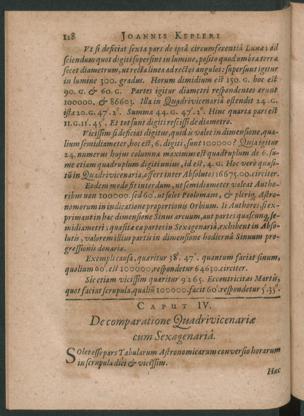 118 IOANNIS KEPLERI
Vt si deficiat sexta pars de ipsa circumferentia Lunæ: ad
sciendum quot digiti supersint in lumine, posito quod umbra terræ
secet diametrum, ut recta linea ad rectos angulos: supersunt igitur
in lumine 300. gradus. Horum dimidium est 150. G. hoc est
90. G. & 60. G. Partes igitur diametri respondentes erunt
100000. & 86603. Illa in Quadrivicenaria ostendit 24. G.
ista 20. G. 47. 2. Summa 44. G. 47. 2. Hinc quarta pars est
11. G. 11. 45. Et tot sunt digiti residui de diametro.
Vicissim si deficiat digitus, quid is valet in dimensione, qua
lium semidiameter, hoc est, 6. digiti, sunt 100000? Quia igitur
24. numerus hujus columnæ maximus est quadruplum de 6. su-
me etiam quadruplum digiti unius, id est, 4. G. Hoc vero quasi-
tū in Quadrivicenaria, affert inter Absolutos 16675.00. circiter.
Eodem modo si interdum, ut semidiameter valeat Autho-
ribus non 100000. sed 60. ut fecit Ptolemæus, & plerique Astro-
nomorum in indicatione proportionū Orbium. Ii Authores, si ex-
primant in hac dimensione Sinus arcuum, aut partes quascunque se-
midiametri; quæsita ea partes in Sexagenaria, exhibent in Abso-
lutis, valorem illius partis in dimensione hodierna Sinuum pro-
gressionis denariæ.
Exempli causa, quæritur 38. 47. quantum faciat sinum,
qualium 60. est 100000, respondetur 64630. circiter.
Sic etiam vicissim quæritur 9265. Eccentricitas Martis,
quot faciat scrupula, qualiū 100000. facit 60. respondetur 5. 35.
CAPUT IV.
De comparatione Quadrivicenariæ
cum Sexagenaria.
Solet esse pars Tabularum Astronomicarum conversio horarum
in scrupula diei & vicissim.
Hæc